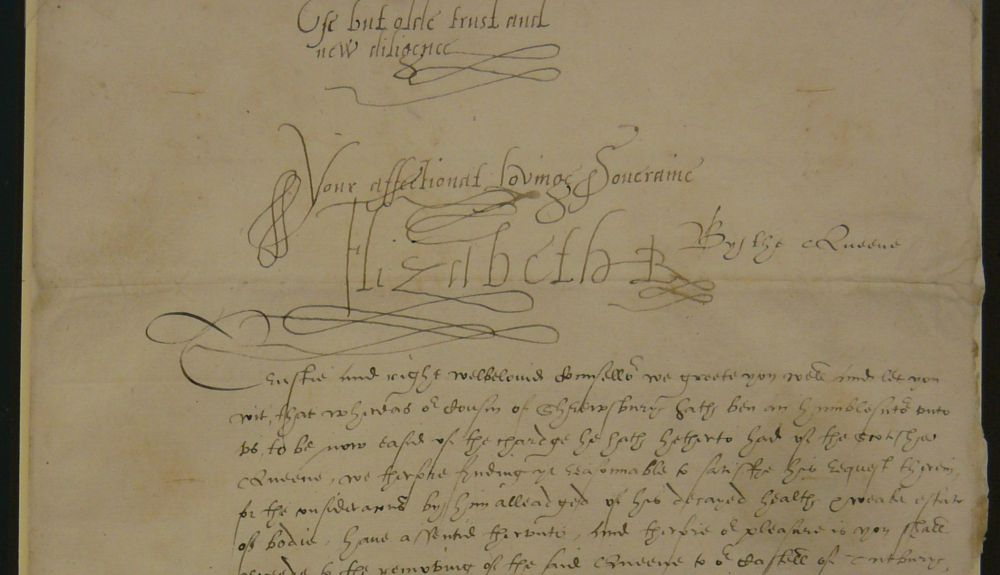 Use but olde trust and
new diligence
Your affectionat loving Soueraine
Elizabeth R
By the Queene
Trustie and right welbeloved Counsellor we greete you well and let you
wit, that whereas or Cousin of Shrewsbury hath ben an humble sutor unto
us to be now eased of the chardge he hath hetherto had of the Scotishe
Queene, we therfore fynding yt reasonnable to satisfie his request therein
for the consideracons by him alleadged of his decayed health & weake estate
of bodie, have assented therunto, and therfore or pleasure is you shall
to the removing of the said Queene to or Castell of Tutbury,